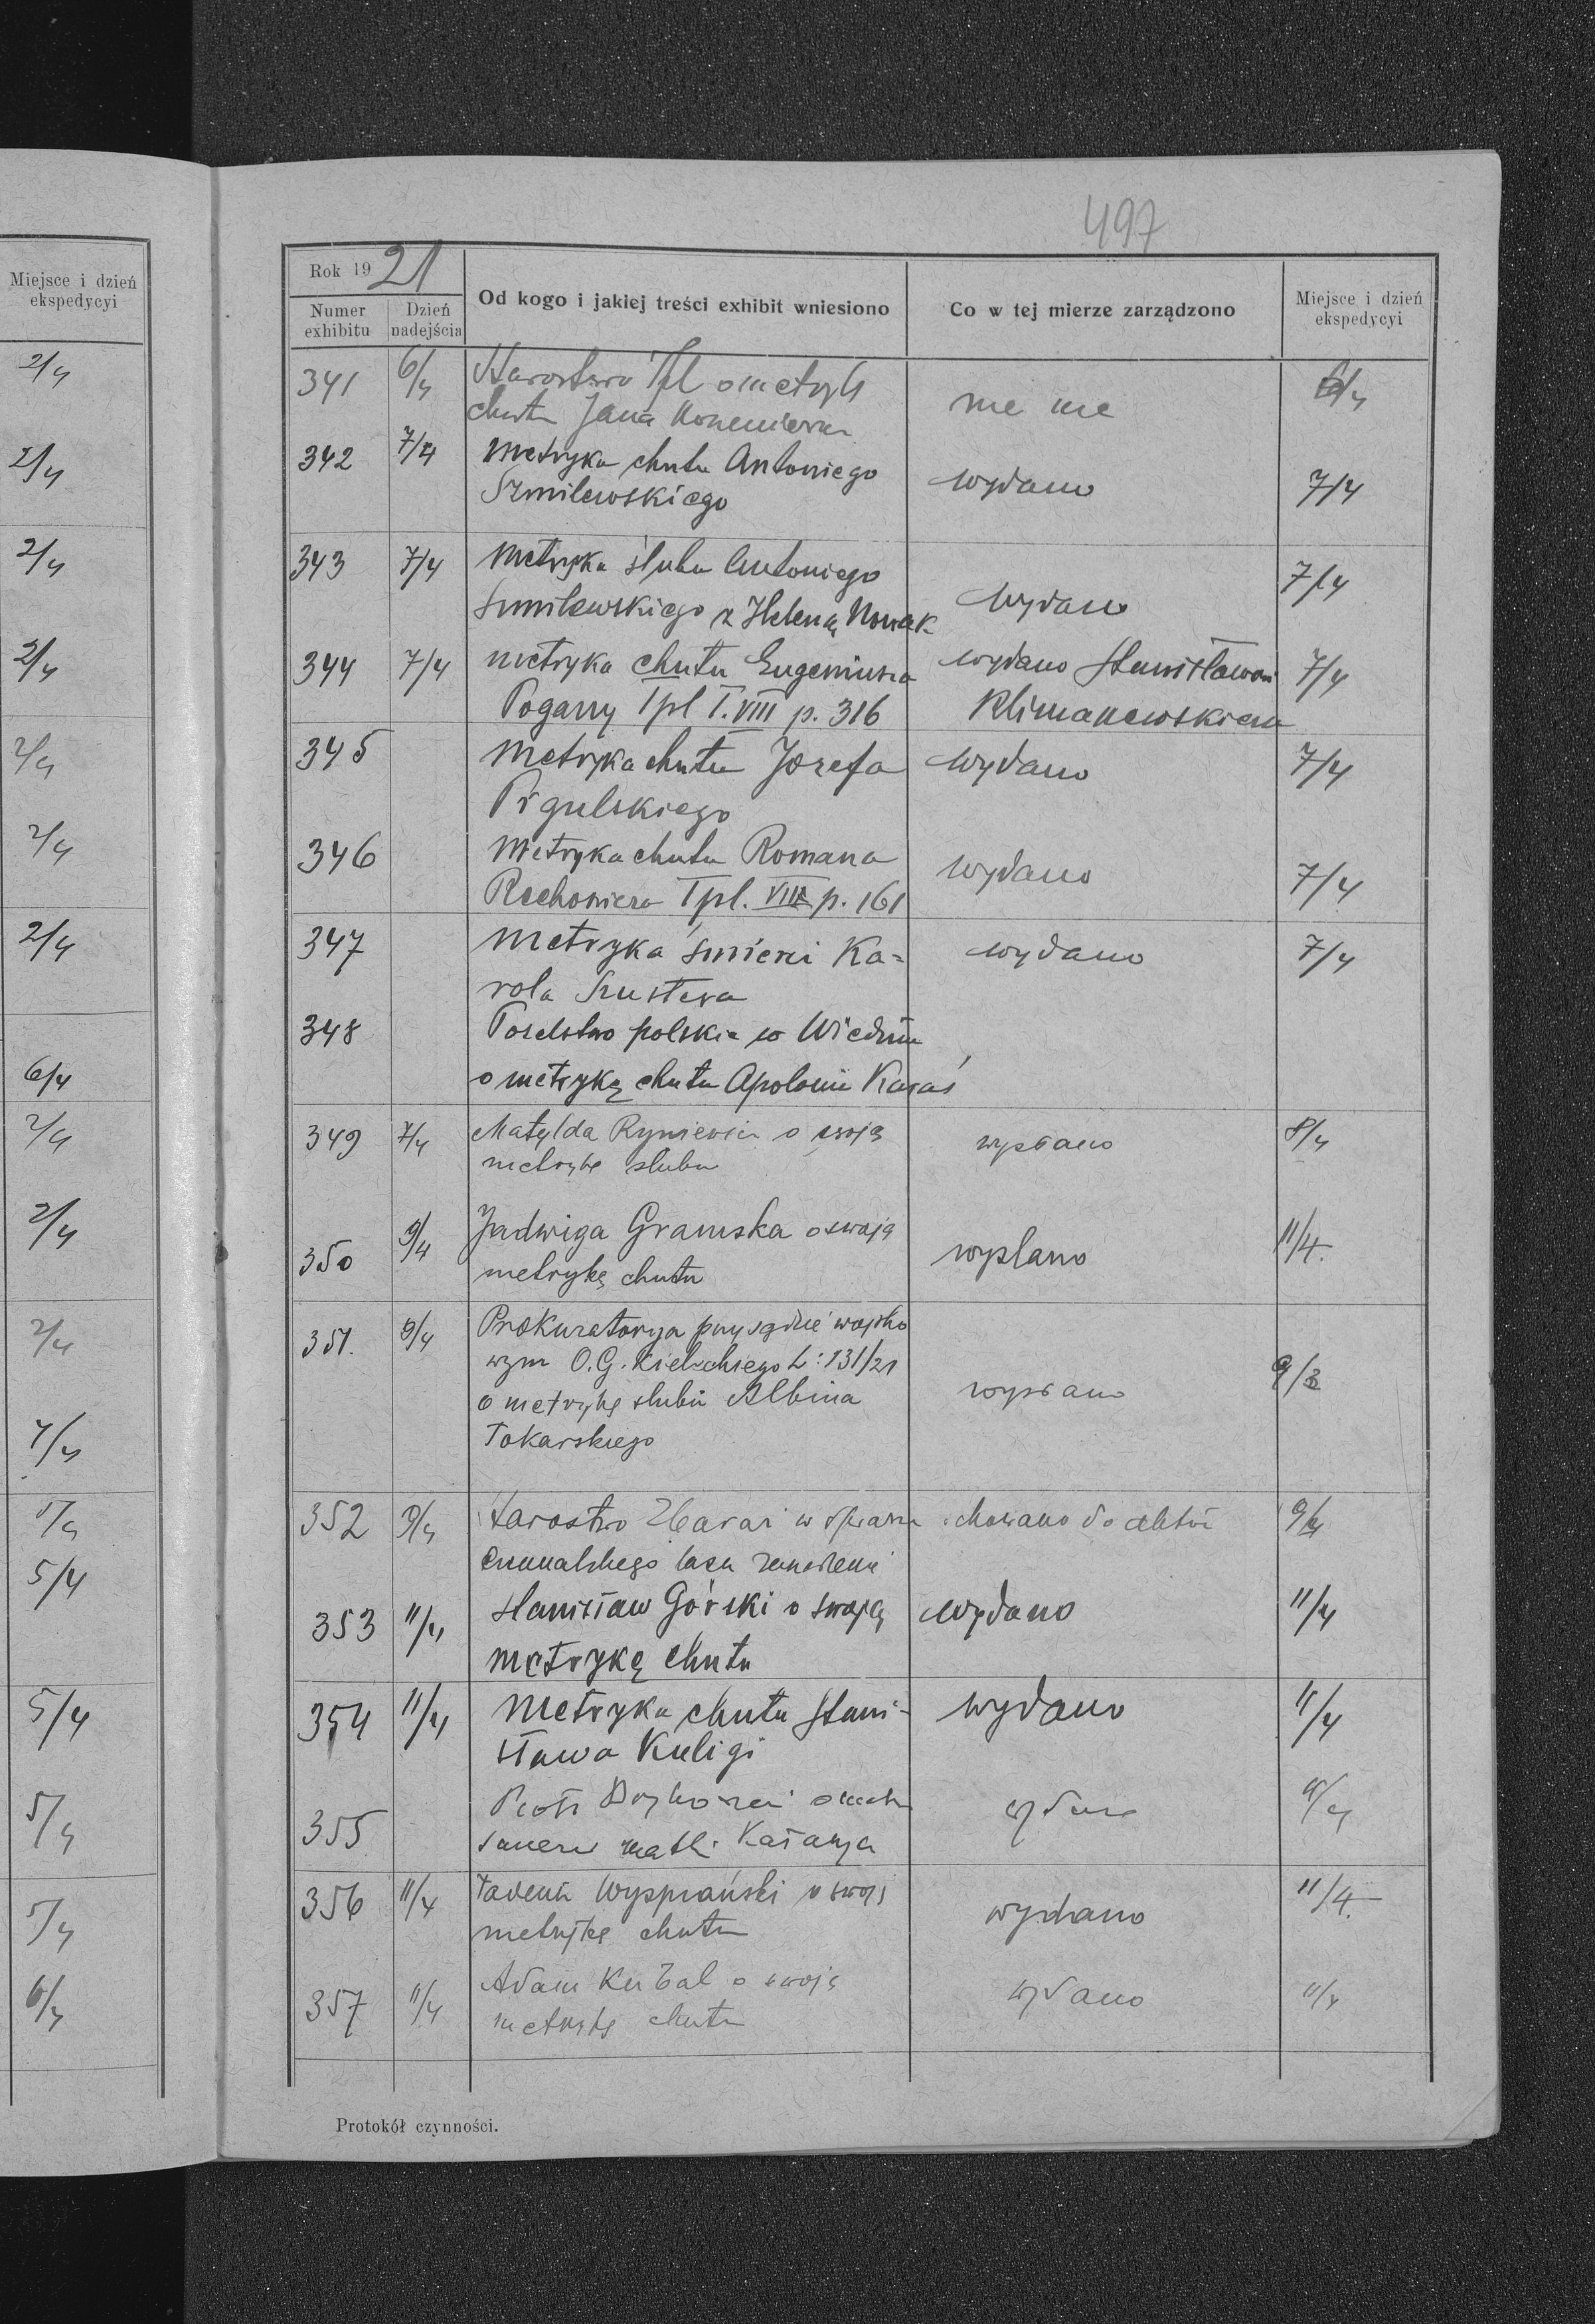 Miejsce i dzień
ekspedycyi
2/4
2/4
2/4
2/4
2/4
2/4
2/4
6/4
2/4
2/4
2/4
4/4
5/4
5/4
5/4
5/4
6/4
497
Rok 1921
Numer exhibitu
Dzień nadejścia
Od kogo i jakiej treści exhibit wniesiono
Co w tej mierze zarządzono
Miejsce i dzień ekspedycyi
341 6/4 Starostwo Tpl o metryk nie ma 6/4
chrztu Jana
342 7/4 Metryka chrztu Antoniego wydano 7/4
Szmilewskiego
343 7/4 Metryka ślubu Antoniego wydano 7/4
Smilewskiego z Heleną Nowak
344 7/4 metryka chrztu Eugeniusza wydano Stanisławowi 7/4
Pogarry Tpl T. VIII p. 316 Klimanowskiemu
345 Metryka chrztu Józefa wydano 7/4
Prgulskiego
346 Metryka chrztu Romana wydano 7/4
Rechowicza Tpl. VIII p. 161
347 Metryka śmierci Ka- wydano 7/4
rola Szustera
348 Poselstwo polskie w Wiedniu
o metrykę chrztu Apolonii Karaś
349 7/4 Matylda Ryniewicz o swoją wysłano 8/4
metrykę ślubu
350 9/4 Jadwiga Gramska o swoją wysłano 11/4.
metrykę chrztu
351. 9/4 Prokuratorya przy sądzie wojsko
wym O.G. Kieleckiego L: 131/21
o metrykę ślubu Albina wysłano 9/3
Tokarskiego
352 9/4 Starostwo Zbaraż w sprawie chowano do aktów 9/4
lasu
353 11/4 Stanisław Górski o swoją wydano 11/4
metrykę chrztu
354 11/4 Metryka chrztu Stani- wydano 11/4
sława Kuligi
355 Piotr o metr wydano 11/4
matki Katarzyna
356 11/4 Tadeusz Wyspiański o swoj wydano 11/4.
metrykę chrztu
357 11/4 Adam Kubal o swoją wydano 11/4
metrykę chrztu
Protokół czynności.